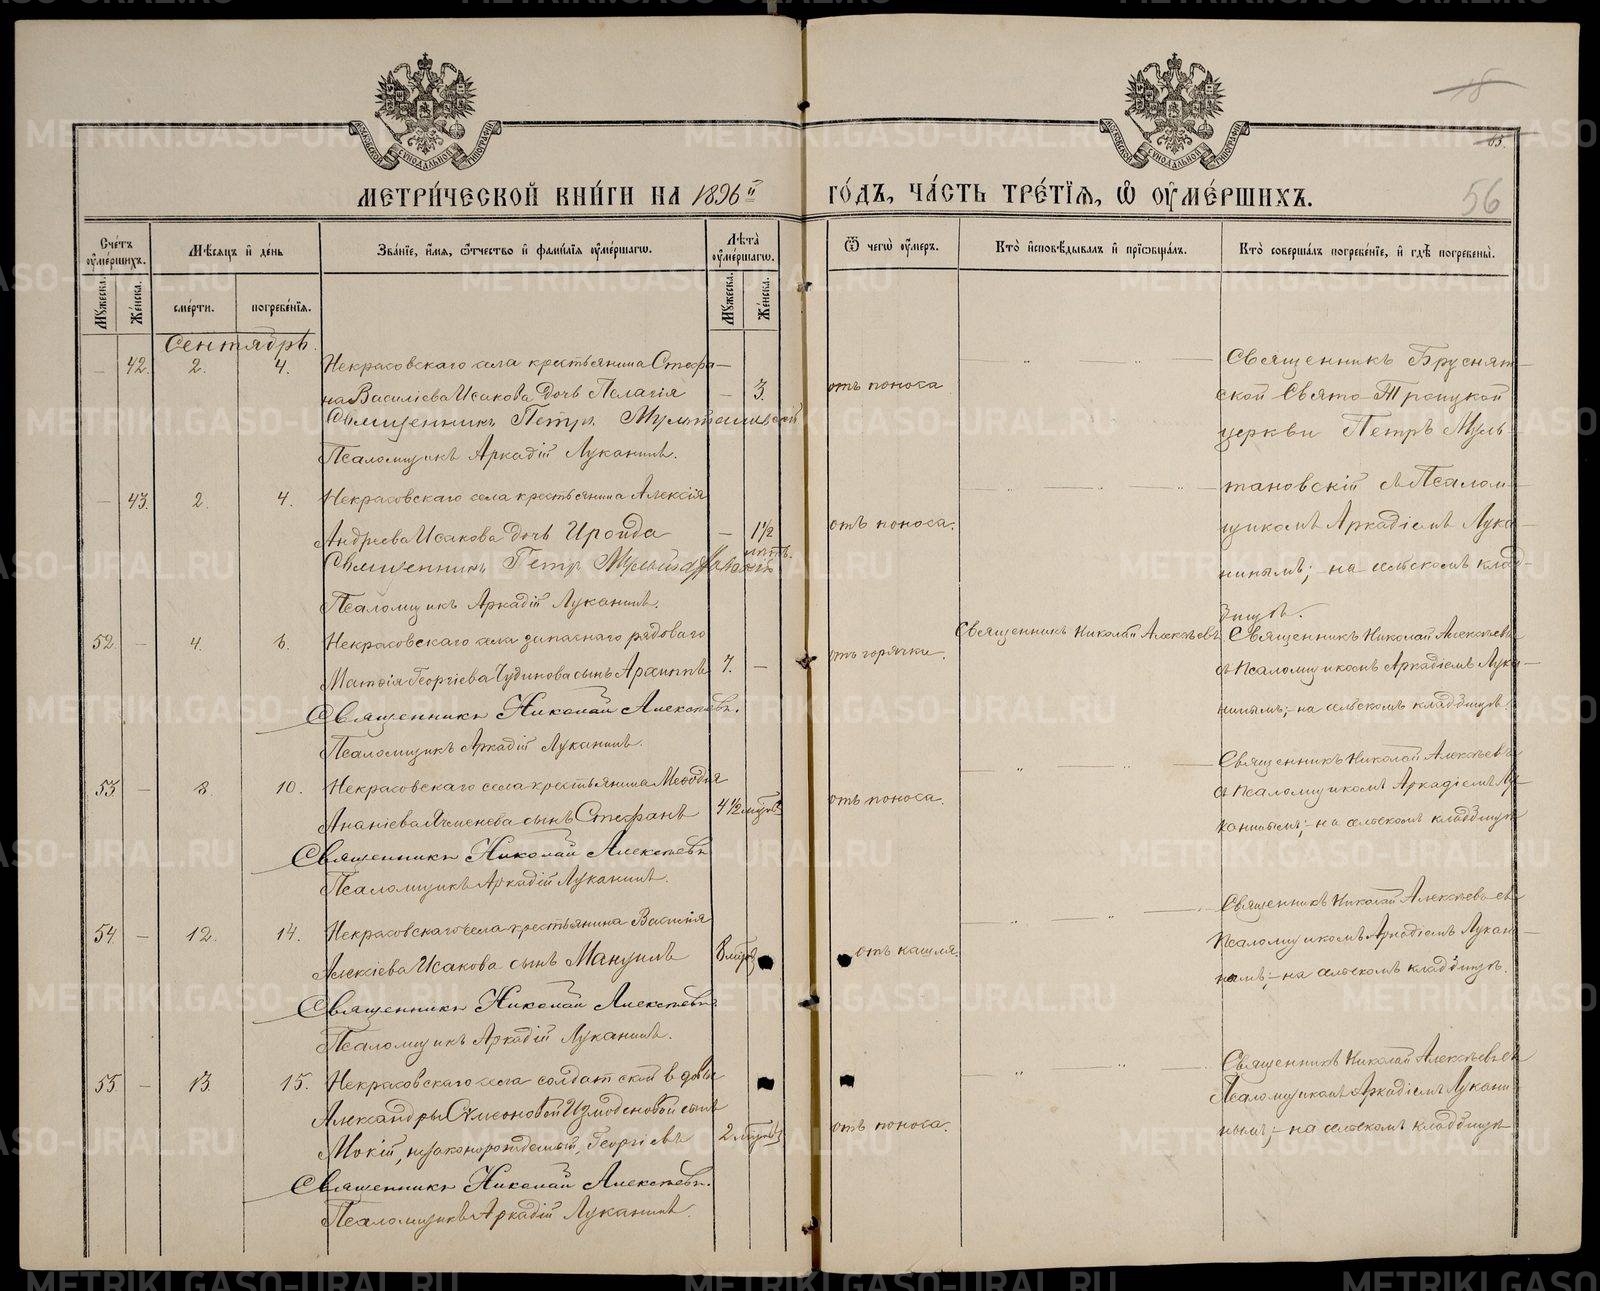 МЕТРИ́ЧЕСКОЙ КНИ́ГИ НА 1896й
ГО́ДЪ, ЧА́СТЬ ТРЕ́ТІЯ, Ѿ ОУМЕ́РШИХЪ.
18
65
56
Счетъ оумершихъ.
Мужеска.
Женска.
Мѣсяцъ и день
смерти.
погребенія.
Званіе, имя, отчество и фамилія оумершаго.
Лѣта оумершаго.
Мужеска.
Женска.
Ѿ чего оумеръ.
Кто исповѣдывалъ и пріобщалъ.
Кто совершалъ погребеніе, и гдѣ погребены.
Сентябрь.
— 42. 2. 4. Некрасовскаго села крестьянина Стефа-
на Василіева Исакова дочь Пелагія — 3. отъ поноса
Священникъ Петръ Мультановскій
Псаломщикъ Аркадій Луканинъ.
Священникъ Бруснят-
ской Свято-Троицкой
церкви Петръ Муль-
тановскій съ Псалом-
щикомъ Аркадіемъ Лука-
нинымъ; на сельскомъ клад-
бищѣ.
— 43. 2. 4. Некрасовскаго села крестьянина Алексія
Андреева Исакова дочь Ироида — 1½ отъ поноса.
Священникъ Петръ Мультановскій
Псаломщикъ Аркадій Луканинъ.
52. — 4. 6. Некрасовскаго села запаснаго рядоваго
Матѳія Георгіева Чудинова сынъ Архиппъ 7. — отъ горячки.
Священникъ Николай Алексѣевъ.
Псаломщикъ Аркадій Луканинъ.
Священникъ Николай Алексѣевъ
Священникъ Николай Алексѣевъ
съ Псаломщикомъ Аркадіемъ Лука-
нинымъ; на сельскомъ кладбищѣ.
53. — 8. 10. Некрасовскаго села крестьянина Меѳодія
Ананіева сынъ Стефанъ 4½ отъ поноса.
Священникъ Николай Алексѣевъ
Псаломщикъ Аркадій Луканинъ.
Священникъ Николай Алексѣевъ
съ Псаломщикомъ Аркадіемъ Лу-
канинымъ; на сельскомъ кладбищѣ
54. — 12. 14. Некрасовскаго села крестьянина Василія
Алексіева Исакова сынъ Мануилъ 8 отъ кашля.
Священникъ Николай Алексѣевъ
Псаломщикъ Аркадій Луканинъ.
Священникъ Николай Алексѣевъ съ
Псаломщикомъ Аркадіемъ Лукани-
нымъ; на сельскомъ кладбищѣ.
55 — 13 15. Некрасовскаго села солдатской вдовы
Александры Сѵмеоновой Измоденовой сынъ
Мокій, незаконорожденный, Георгіевъ 2 отъ поноса.
Священникъ Николай Алексѣевъ.
Псаломщикъ Аркадій Луканинъ.
Священникъ Николай Алексѣевъ съ
Псаломщикомъ Аркадіемъ Лукани-
нымъ; на сельскомъ кладбищѣ
METRIKI.GASO-URAL.RU